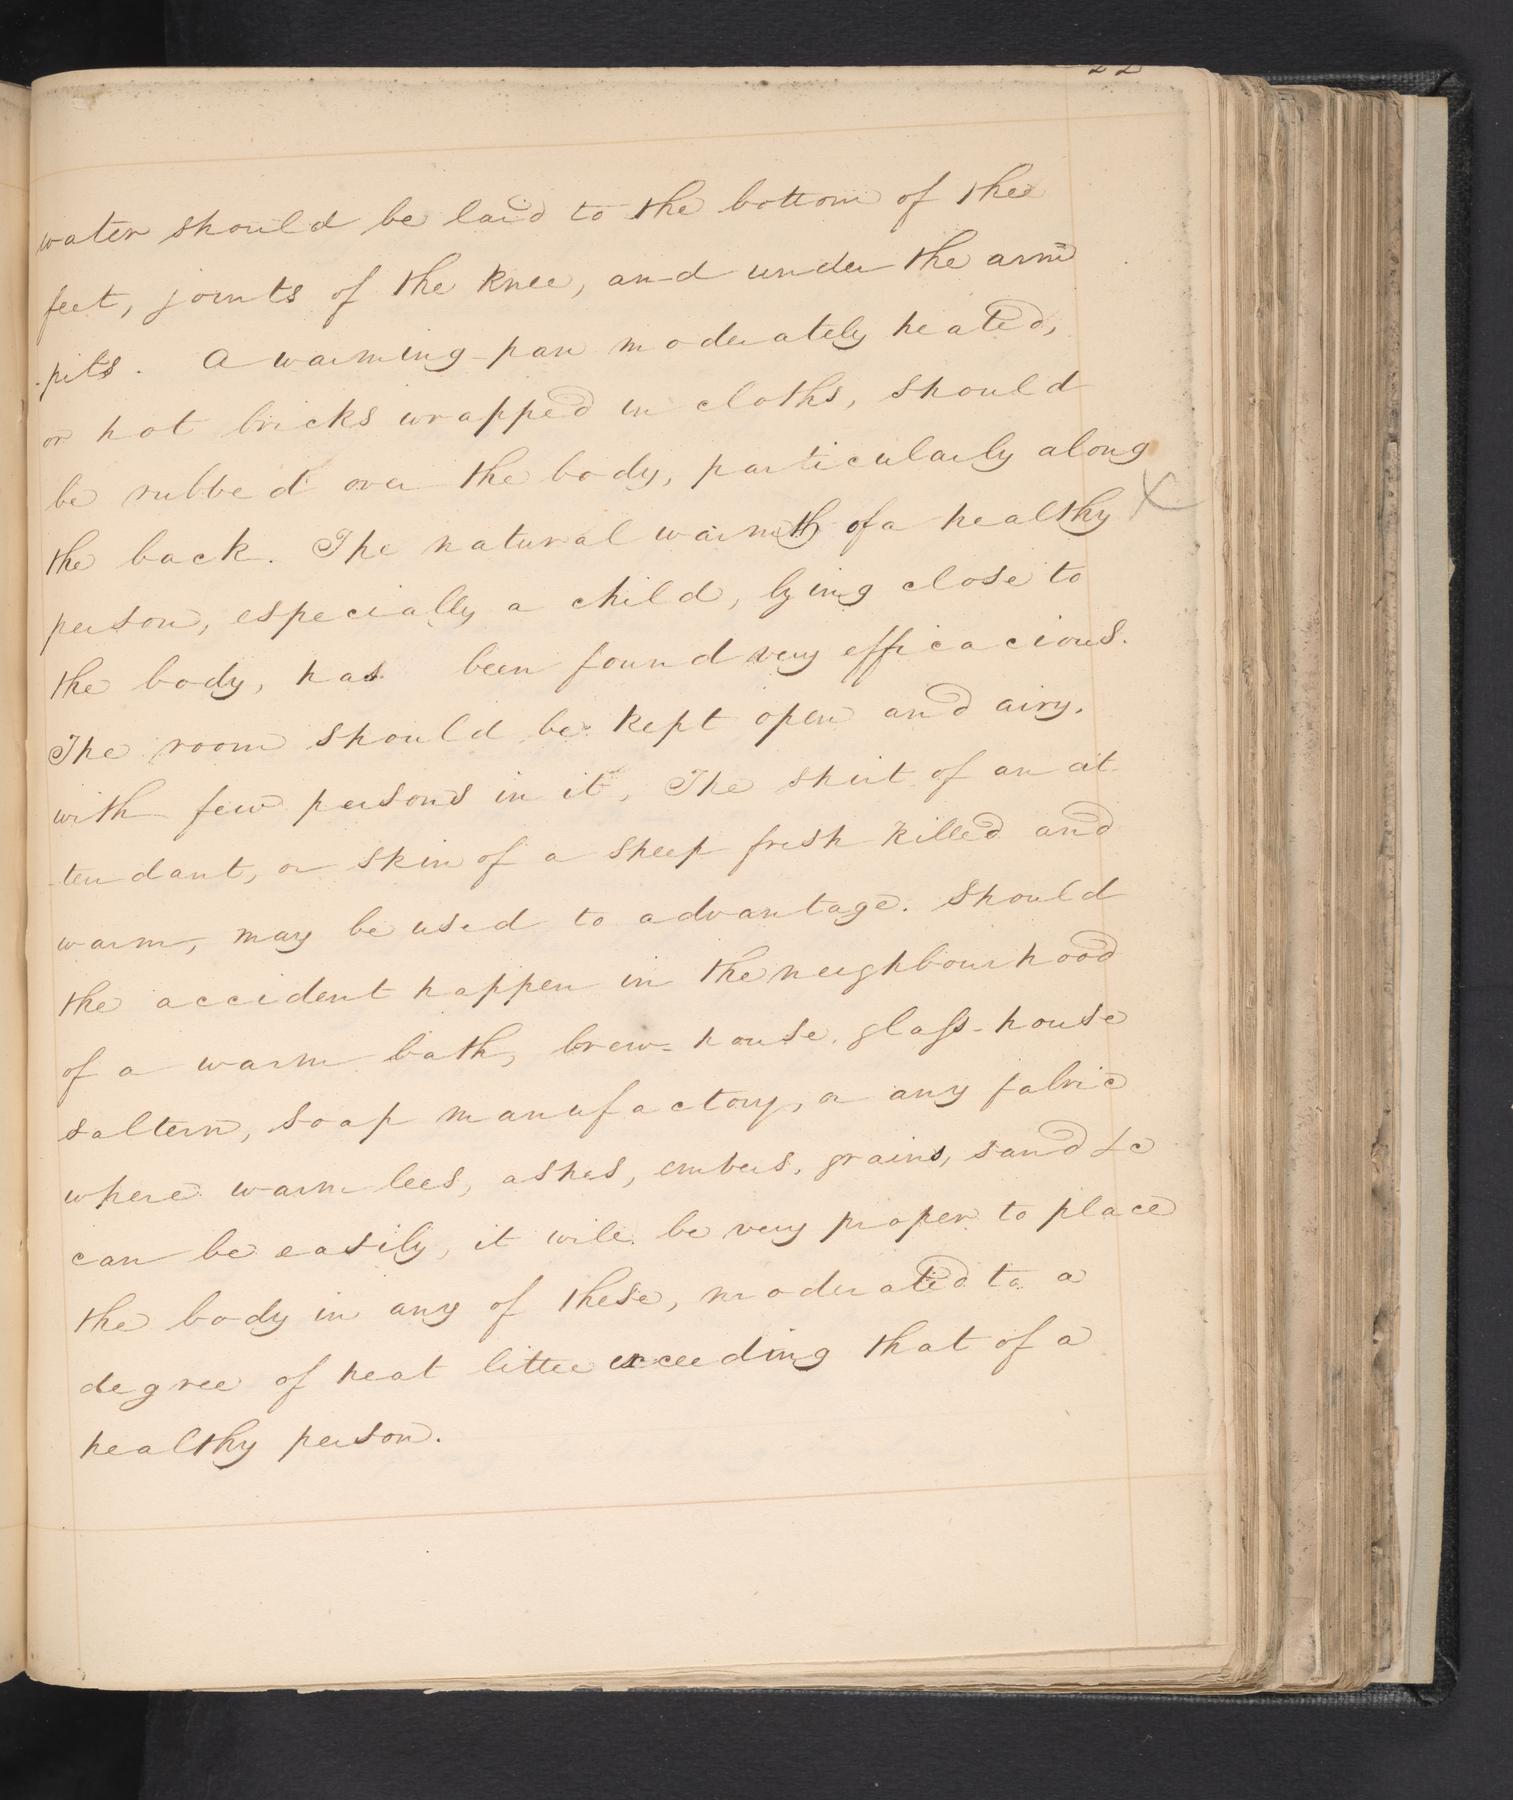 22
water should be laid to the bottom of the
feet, joints of the knee, and under the arm
-pits. A warming-pan moderately heated,
or hot bricks wrapped in cloths, should
be rubbed over the body, particularly along
the back. The natural warmth of a healthy X
person, especially a child, lying close to
the body, has been found very efficacious.
The room should be kept open and airy,
with few persons in it. The shirt of an at
-tendant, or skin of a sheep fresh killed and
warm, may be used to advantage. Should
the accident happen in the neighbourhood
of a warm bath, brew-house, glass-house
saltern, soap manufactory, or any fabric
where warm lees, ashes, embers, grains, sand &c
can be easily, it will be very proper to place
the body in any of these, moderated to a
degree of heat little exceeding that of a
healthy person.